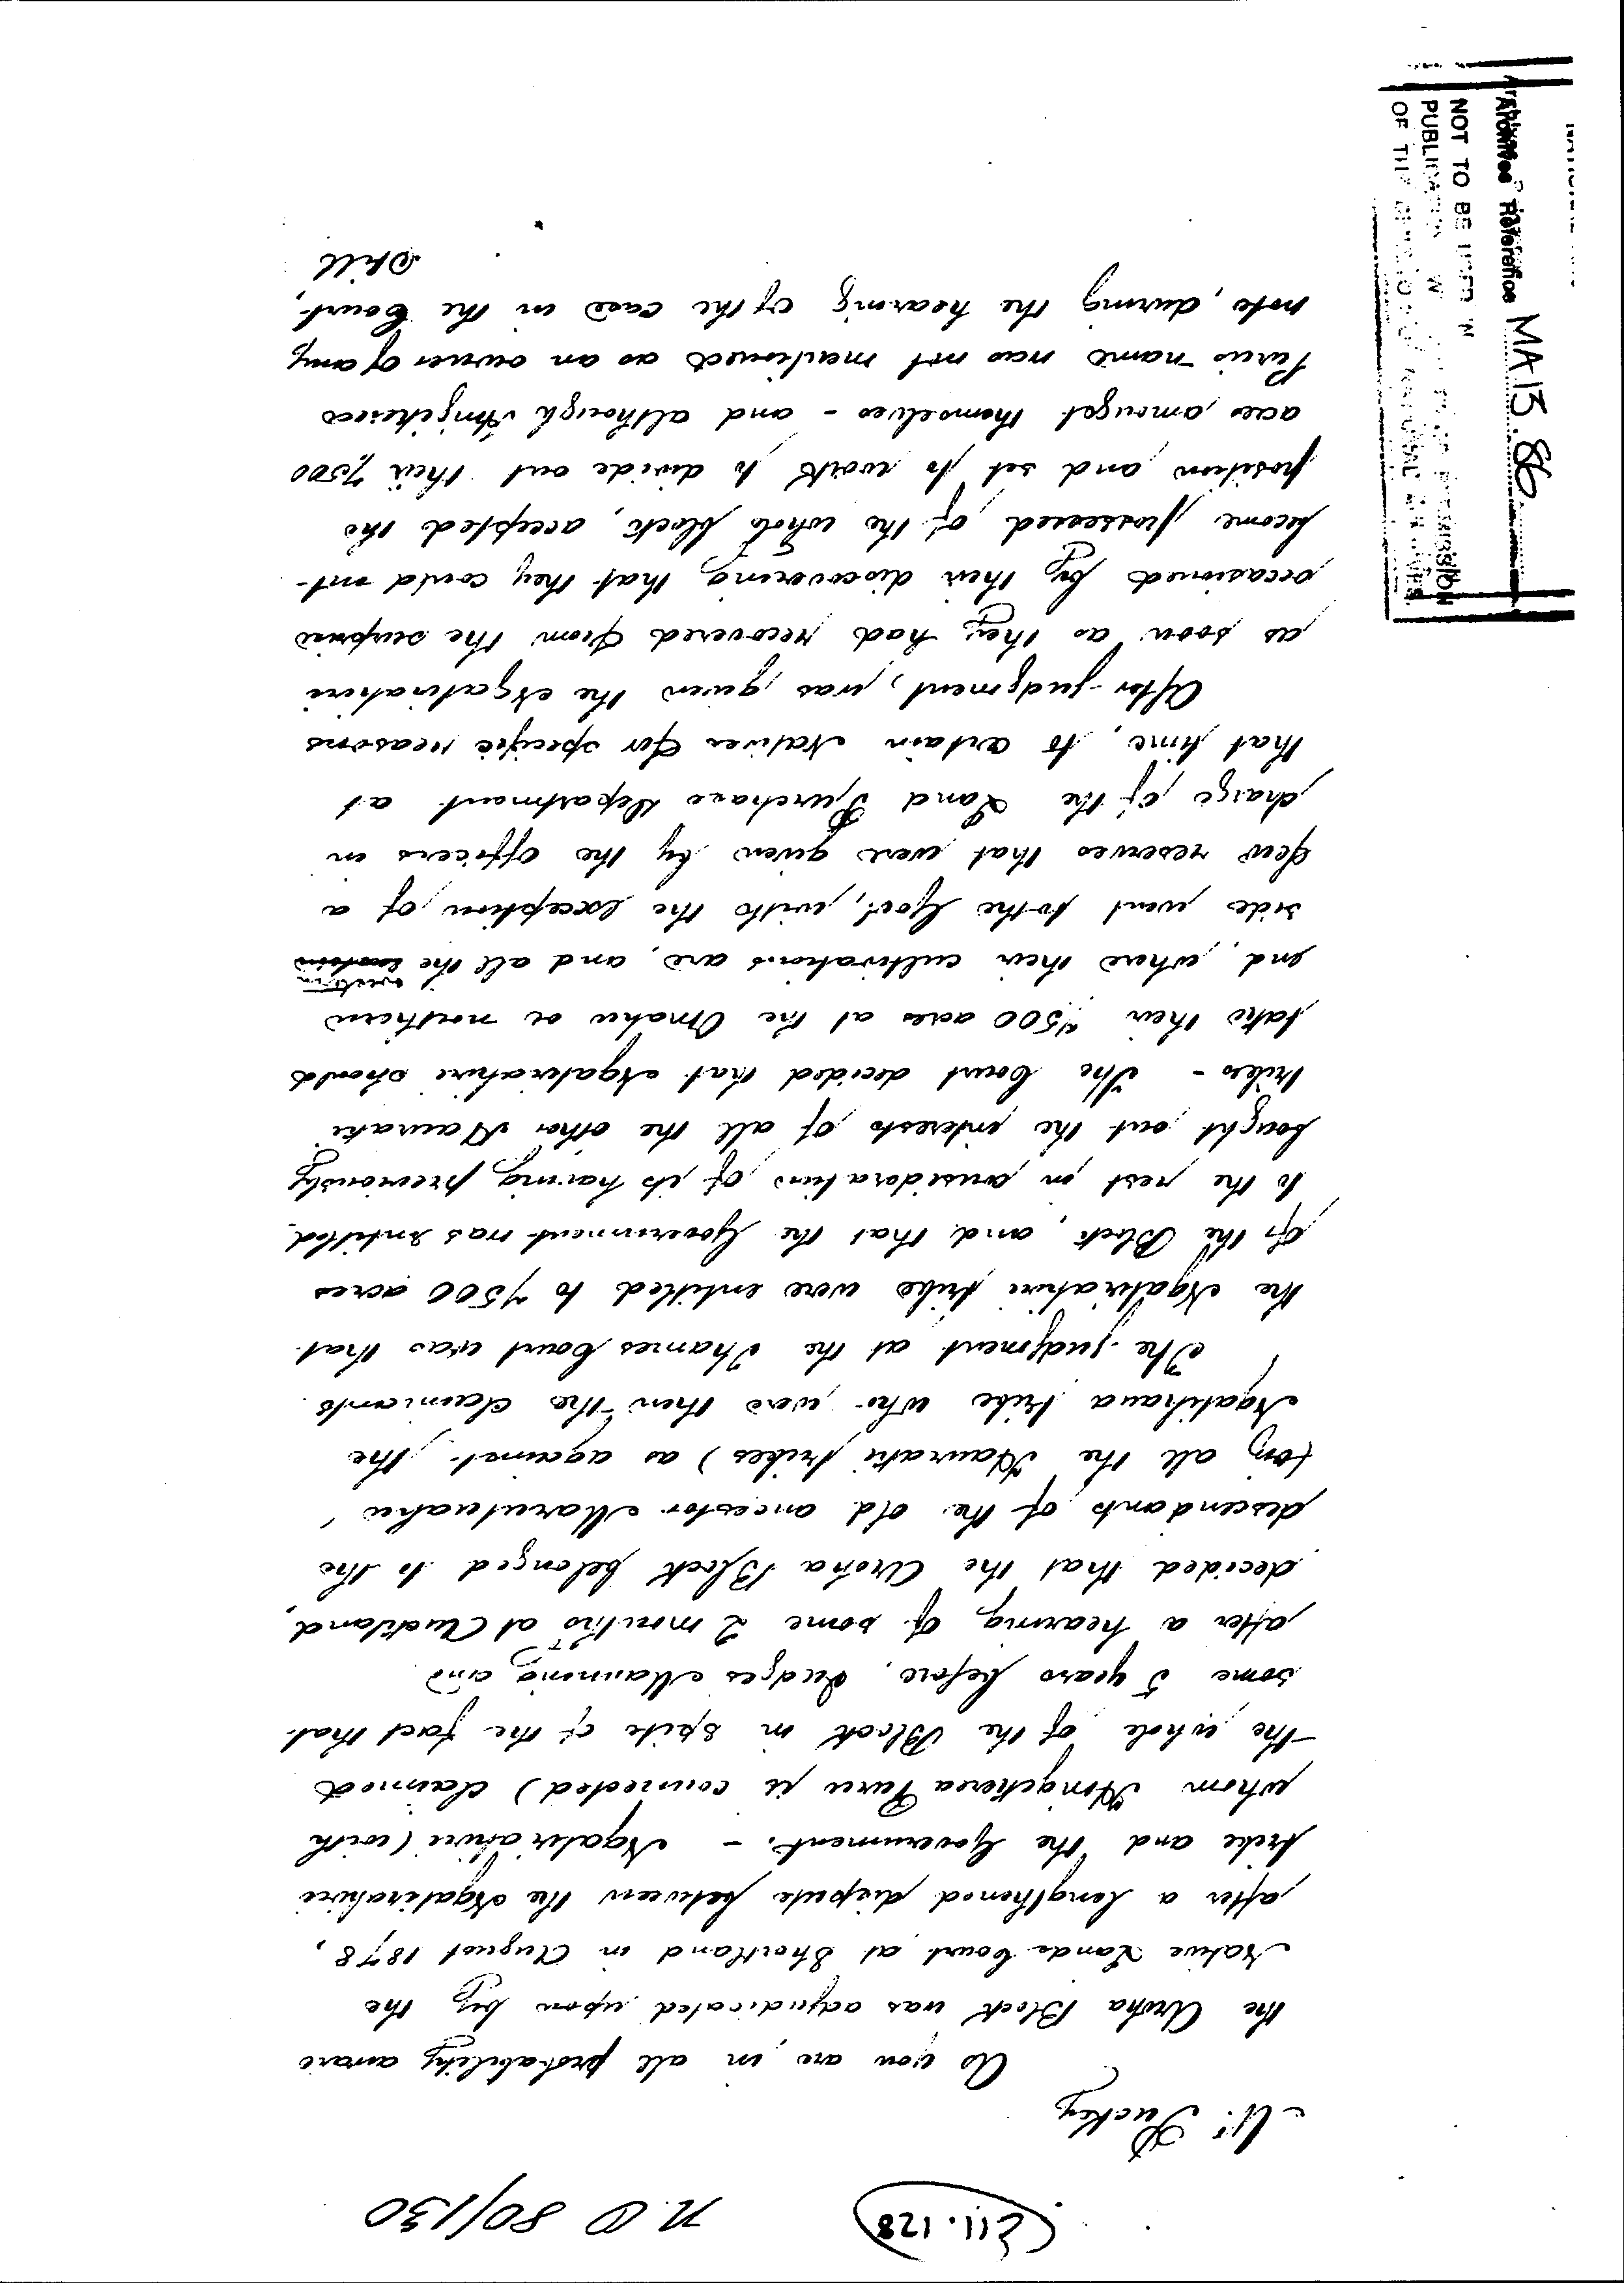 E11.128
N.O 80/130
Mr. Puckey
As you are in all probability aware
the Aroha Block was adjudicated upon by the
Native Lands Court at Shortland in August 1878,
after a lengthened dispute between the Ngatirahiri
tribe and the Government. - Ngatirahiri (with
whom Hingikerea Puru is connected) claimed
the whole of the Block in spite of the fact that
some 5 years before, Judges Manning and
after a hearing of some 2 months at Auckland,
decided that the Aroha Block belonged to the
descendants of the old ancestor Marutuahu,
(or all the Hauraki tribes) as against the
Ngatihaua tribe who were then the claimants.
The judgment at the Thames Court was that
the Ngatirahiri tribe were entitled to 7500 acres
of the Block, and that the Government was entitled
to the rest in consideration of its having previously
bought out the interests of all the other Hauraki
tribes - The Court decided that Ngatirahiri should
take their 7500 acres at the Omahu or northern
end, where their cultivations are, and all the western
side went to the Govt, with the exception of a
few reserves that were given by the officers in
charge of the Land Purchase Department at
that time, to certain Natives for specific reasons
After judgment, was given the Ngatirahiri
as soon as they had recovered from the surprise
occasioned by their discovering that they could not
become possessed of the whole block, accepted the
position and set to work to divide out their 7500
acs amongst themselves - and although Hingikerea
Purus name was not mentioned as an owner of any
note, during the hearing of the case in the Court,
Still
Archives Reference MA 13.86
NOT TO BE USED
PUBLICATION
PERMISSION
OF THE